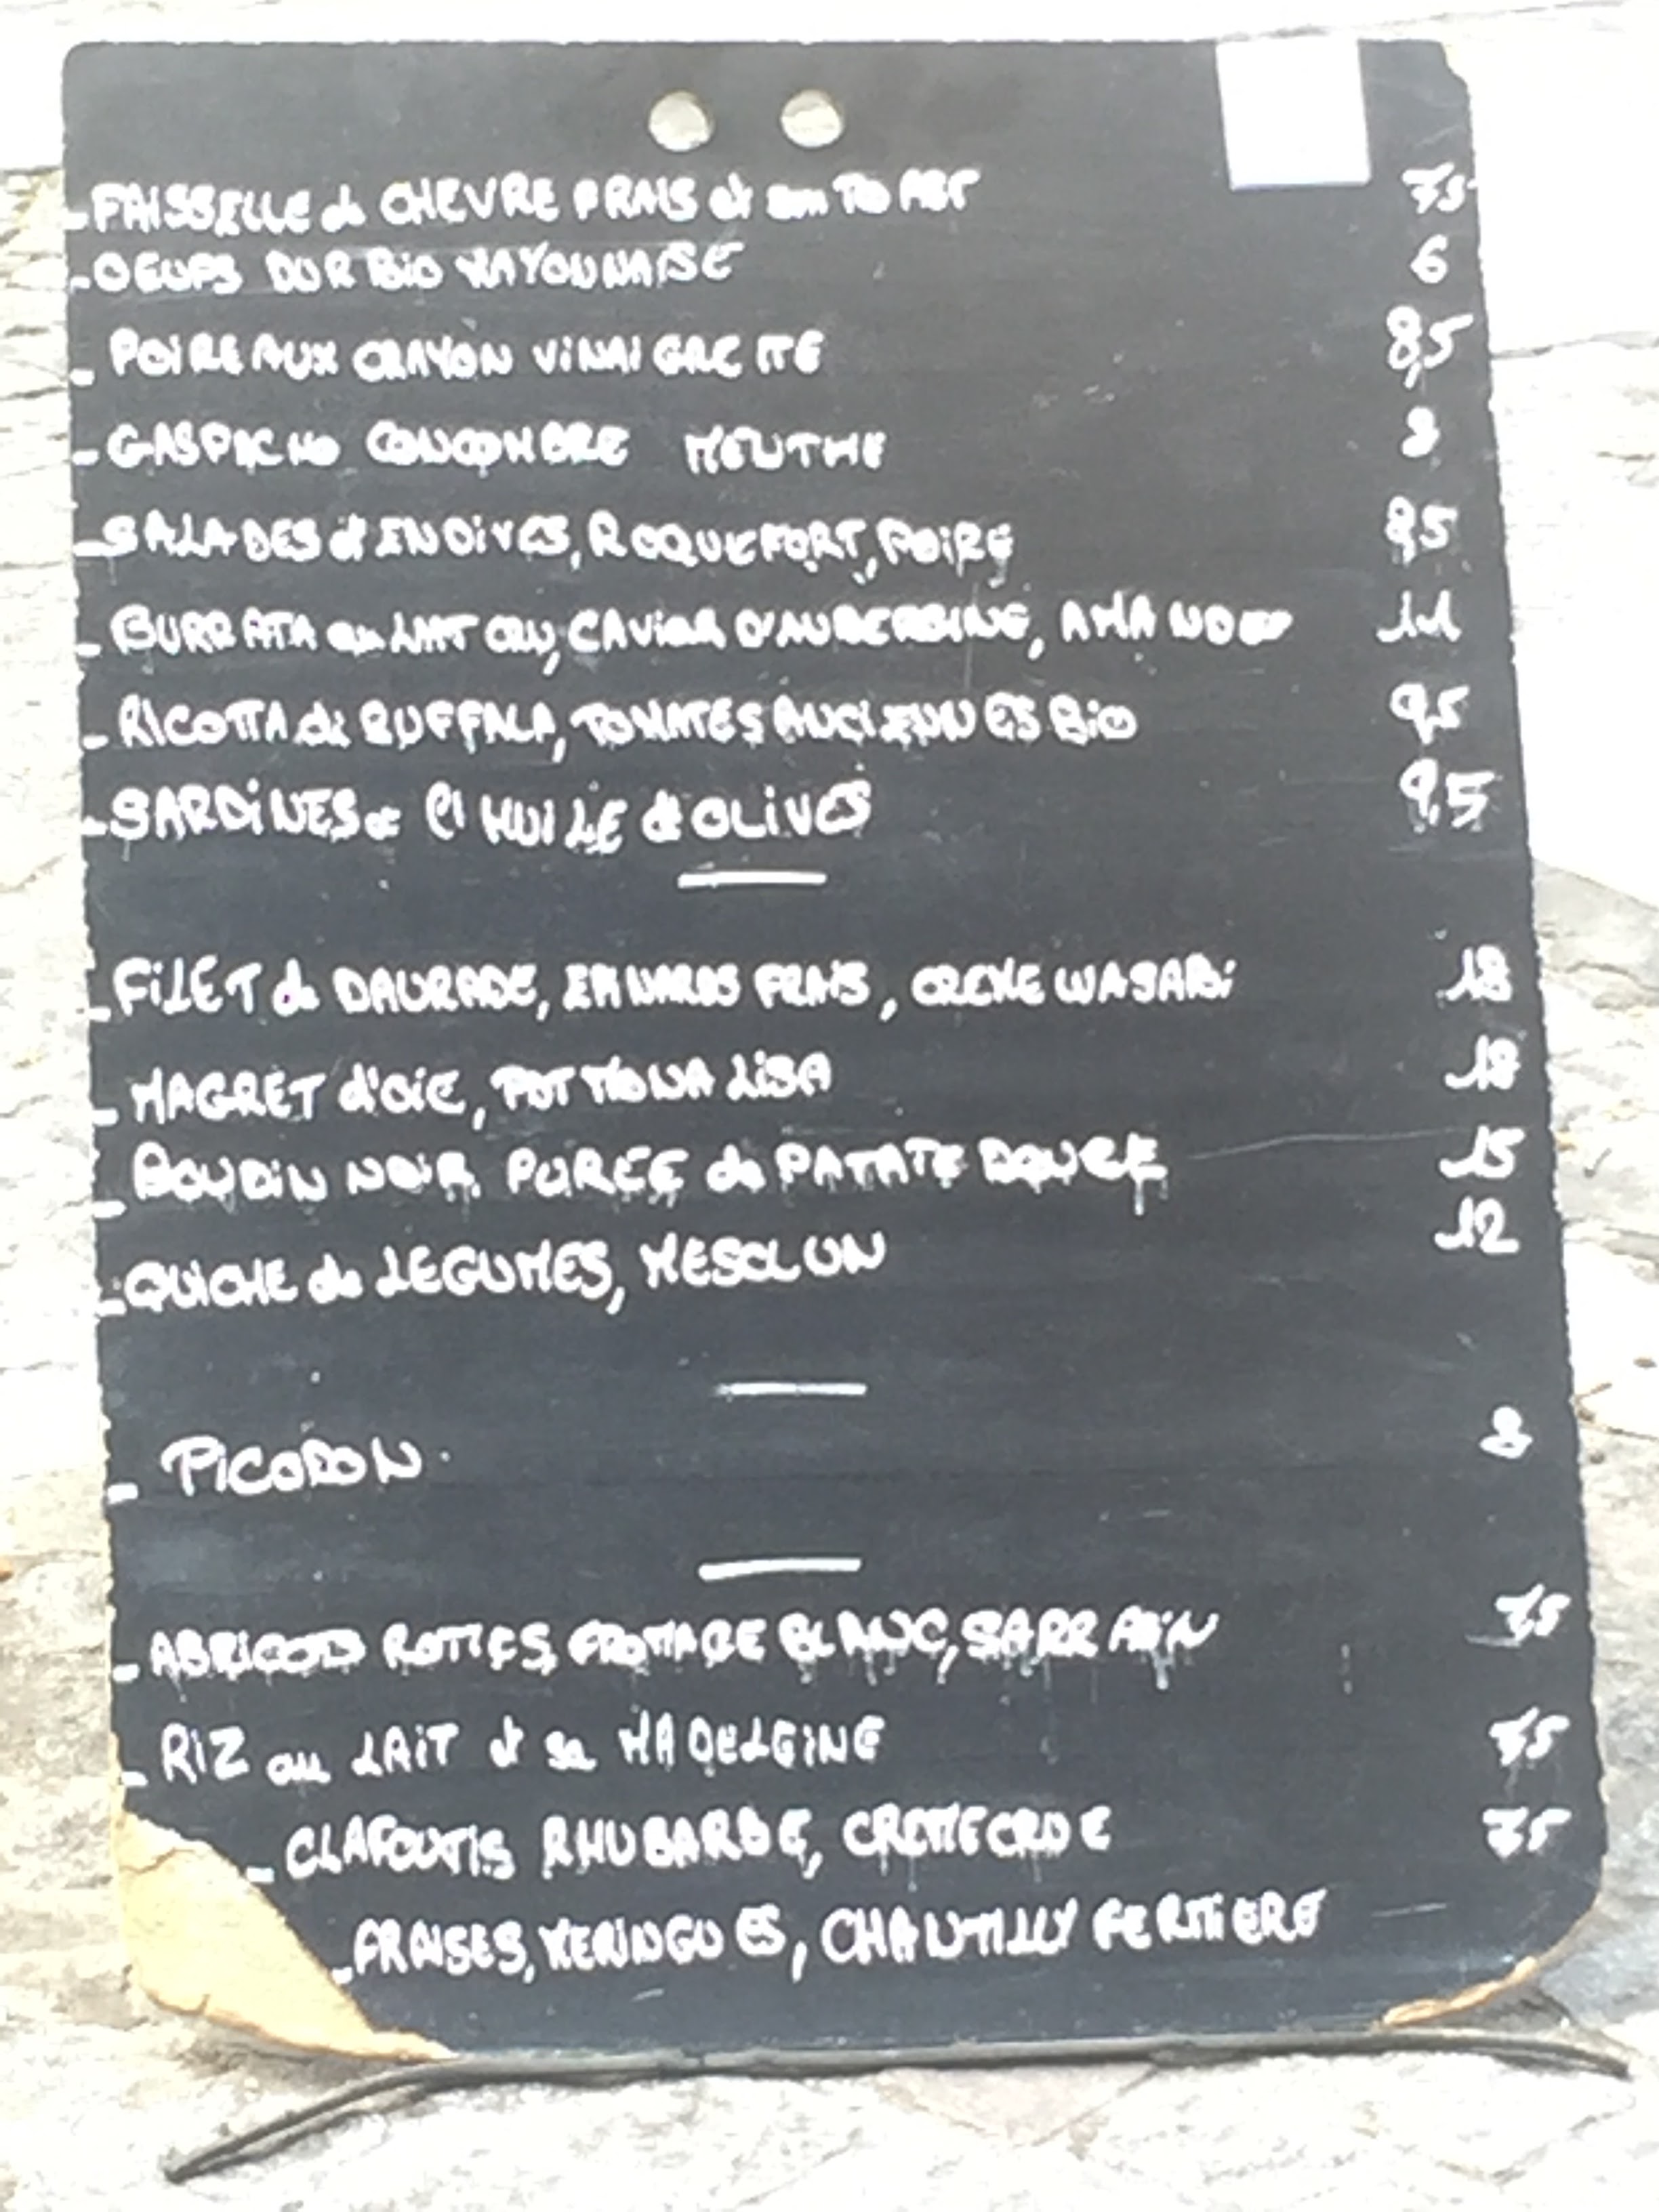 - FAISSELLE de CHEVRE FRAIS et son TOAST 7,5
- OEUFS DUR BIO MAYONNAISE 6
- POIREAUX CRAYON VINAIGRETTE 8,5
- GASPACHO CONCOMBRE MENTHE 8
- SALADES d'ENDIVES, ROQUEFORT, POIRE 8,5
- BURRATA au LAIT CRU, CAVIAR D'AUBERGINE, AMANDES 11
- RICOTTA di BUFFALA, TOMATES ANCIENNES BIO 9,5
- SARDINES à l'HUILE d'OLIVES 9,5
- FILET de DAURADE, EPINARDS FRAIS, CREME WASABI 18
- MAGRET d'OIE, POT MONA LISA 18
- BOUDIN NOIR, PUREE de PATATE DOUCE 15
- QUICHE de LEGUMES, MESCLUN 12
- PICODON 8
- ABRICOTS ROTIES, FROMAGE BLANC, SARRASIN 7,5
- RIZ au LAIT et sa MADELEINE 7,5
- CLAFOUTIS RHUBARBE, CREME CRUE 7,5
- FRAISES, MERINGUES, CHANTILLY FERMIERE